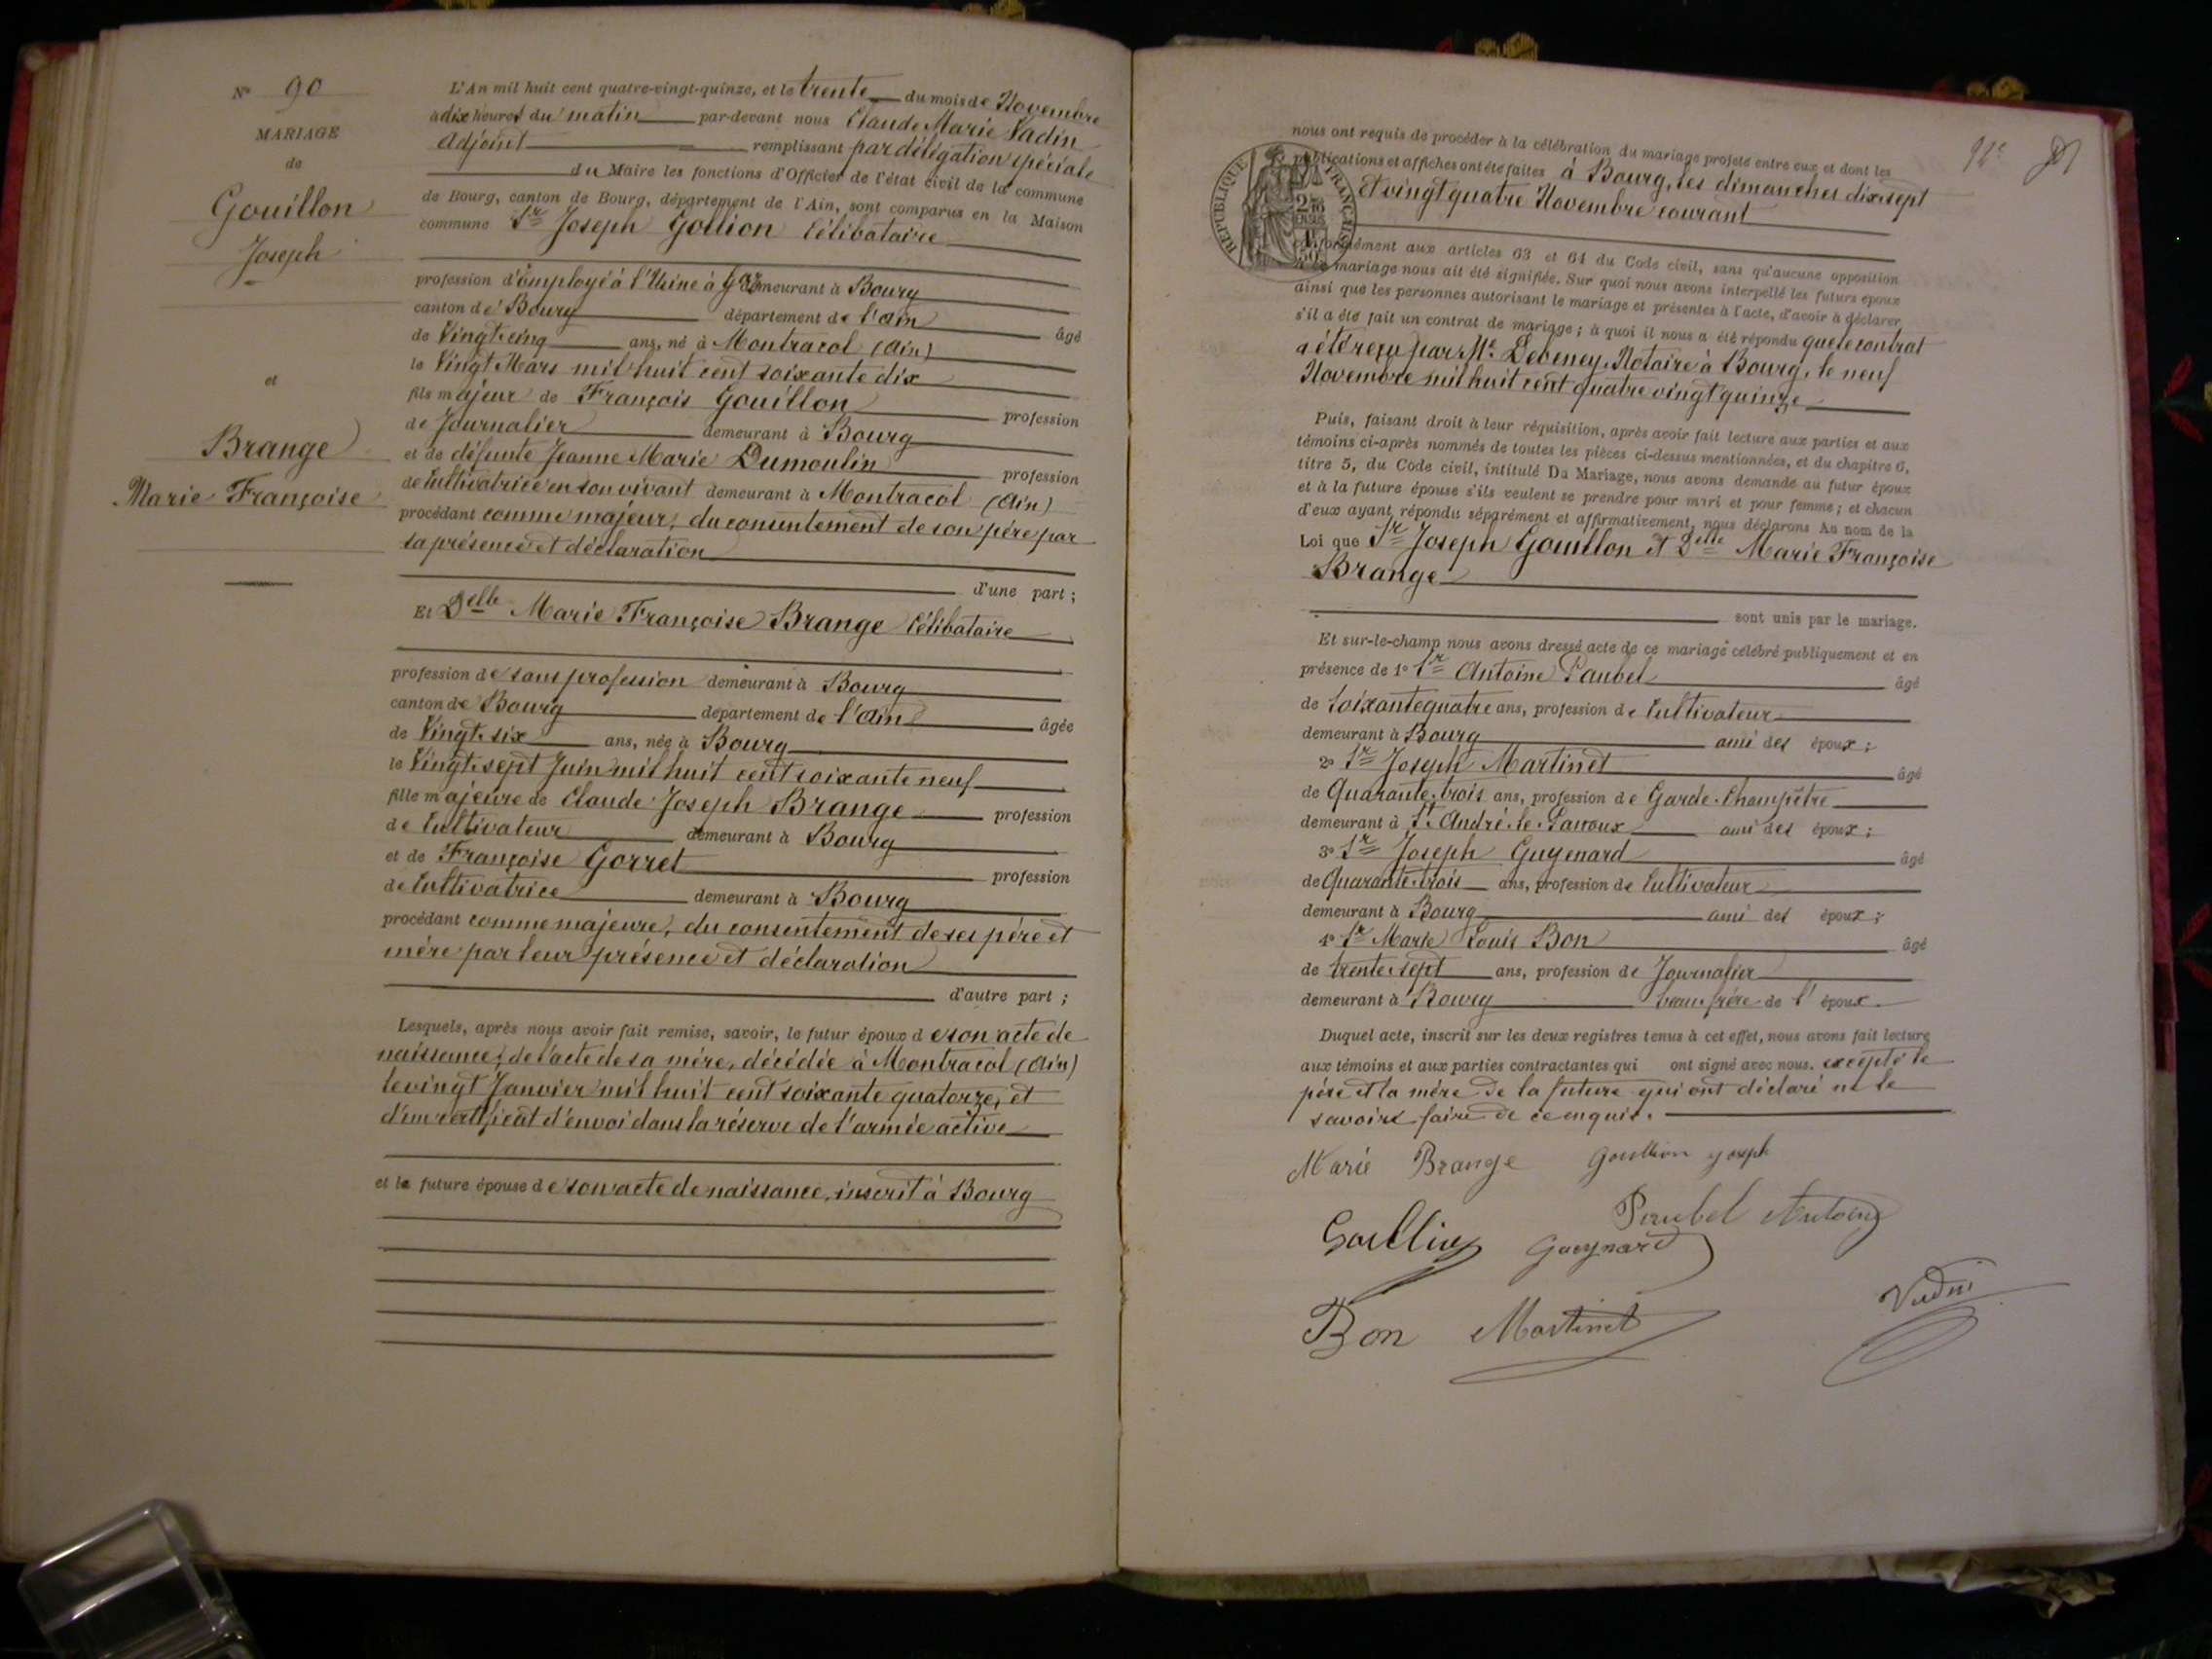 N° 90
MARIAGE
de
Gouillon
Joseph
et
Brange
Marie Françoise
L'An mil huit cent quatre-vingt-quinze, et le trente du mois de Novembre
à dix heures du matin par-devant nous Claude Marie Vadin
Adjoint remplissant par délégation spéciale
du Maire les fonctions d'Officier de l'état civil de la commune
de Bourg, canton de Bourg, département de l'Ain, sont comparus en la Maison
commune Sr Joseph Gollion Célibataire
profession d'employé à l'Usine à gaz demeurant à Bourg
canton de Bourg département de l'Ain âgé
de Vingt-cinq ans, né à Montracol (Ain)
le Vingt Mars mil huit cent soixante dix
fils majeur de François Gouillon profession
de Journalier demeurant à Bourg
et de défunte Jeanne Marie Dumoulin profession
de Cultivatrice en son vivant demeurant à Montracol (Ain)
procédant comme majeur, du consentement de son père par
sa présence et déclaration
d'une part ;
Et Delle Marie Françoise Brange Célibataire
profession de sans profession demeurant à Bourg
canton de Bourg département de l'Ain âgée
de Vingt-six ans, née à Bourg
le Vingt-sept Juin mil huit cent soixante neuf
fille majeure de Claude Joseph Brange profession
de Cultivateur demeurant à Bourg
et de Françoise Gorret profession
de Cultivatrice demeurant à Bourg
procédant comme majeure, du consentement de ses père et
mère par leur présence et déclaration
d'autre part ;
Lesquels, après nous avoir fait remise, savoir, le futur époux de son acte de
naissance, de l'acte de sa mère, décédée à Montracol (Ain)
le vingt Janvier mil huit cent soixante quatorze, et
d'un certificat d'envoi dans la réserve de l'armée active
et la future épouse de son acte de naissance, inscrit à Bourg
92e
RÉPUBLIQUE FRANÇAISE
nous ont requis de procéder à la célébration du mariage projeté entre eux et dont les
publications et affiches ont été faites à Bourg, les dimanches dix-sept
et vingt quatre Novembre courant
conformément aux articles 63 et 64 du Code civil, sans qu'aucune opposition
à ce mariage nous ait été signifiée. Sur quoi nous avons interpellé les futurs époux
ainsi que les personnes autorisant le mariage et présentes à l'acte, d'avoir à déclarer
s'il a été fait un contrat de mariage ; à quoi il nous a été répondu que le contrat
a été reçu par Me Debeney, Notaire à Bourg, le neuf
Novembre mil huit cent quatre vingt quinze
Puis, faisant droit à leur réquisition, après avoir fait lecture aux parties et aux
témoins ci-après nommés de toutes les pièces ci-dessus mentionnées, et du chapitre 6,
titre 5, du Code civil, intitulé Du Mariage, nous avons demandé au futur époux
et à la future épouse s'ils veulent se prendre pour mari et pour femme ; et chacun
d'eux ayant répondu séparément et affirmativement, nous déclarons Au nom de la
Loi que Sr Joseph Gouillon et Delle Marie Françoise
Brange
sont unis par le mariage.
Et sur-le-champ nous avons dressé acte de ce mariage célébré publiquement et en
présence de 1° Sr Antoine Paubel âgé
de Soixante quatre ans, profession de Cultivateur
demeurant à Bourg ami des époux ;
2° Sr Joseph Martinet âgé
de Quarante-trois ans, profession de Garde-Champêtre
demeurant à St André-le-Panoux ami des époux ;
3° Sr Joseph Guyenard âgé
de Quarante-trois ans, profession de Cultivateur
demeurant à Bourg ami des époux ;
4° Sr Marie Louis Bon âgé
de trente-sept ans, profession de Journalier
demeurant à Bourg beau-frère de l'époux.
Duquel acte, inscrit sur les deux registres tenus à cet effet, nous avons fait lecture
aux témoins et aux parties contractantes qui ont signé avec nous. excepté le
père et la mère de la future qui ont déclaré ne le
savoir faire de ce enquis.
Marie Brange Goullion joseph
Goullion Paubel Antoine
Gueynard
Bon Martinet Vadin